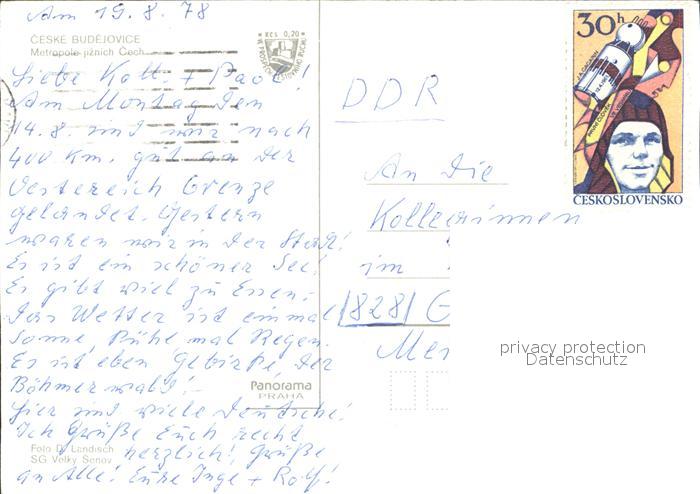 Am 19.8.78
ČESKÉ BUDĚJOVICE
Metropole jižních Čech
KCS 0,20
Liebe Kolleg + Paol!
Am Montag den
14.8 sind wir nach
400 km. gut an der
Oestereich Grenze
gelandet. Gestern
waren wir in der Stadt!
Es ist ein schöner See!
Es gibt viel zu Essen.-
Das Wetter ist einmal
Sonne, Kühe, mal Regen.
Es ist eben Gebirge, der
Böhmerwald! -
Hier sind viele Deutsche!
Ich Grüße Euch recht
herzlich! Grüße
an Alle! Eure Inge + Rolf!
Foto D. Landisch
SG Velký Šenov
Panorama
PRAHA
DDR
An die
Kolleginnen
im
8281 G
Mer
30h
J.A. GAGARIN
12.4.1961
PRVNÍ ČLOVĚK VE VESMÍRU
ČESKOSLOVENSKO
privacy protection
Datenschutz